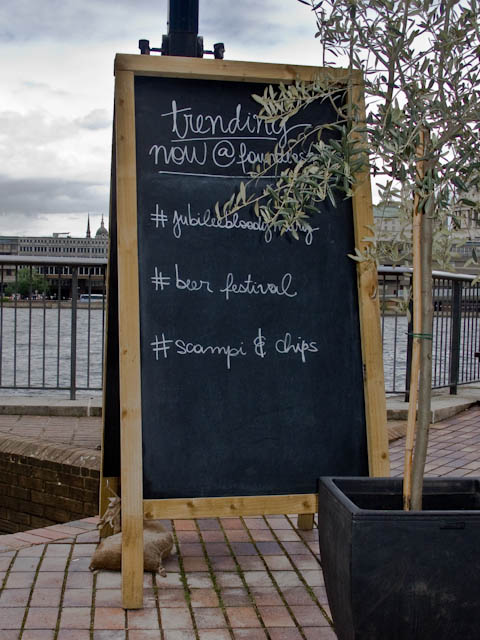 trending
now @ founders
#jubileebloodymary
# beer festival
# scampi & chips